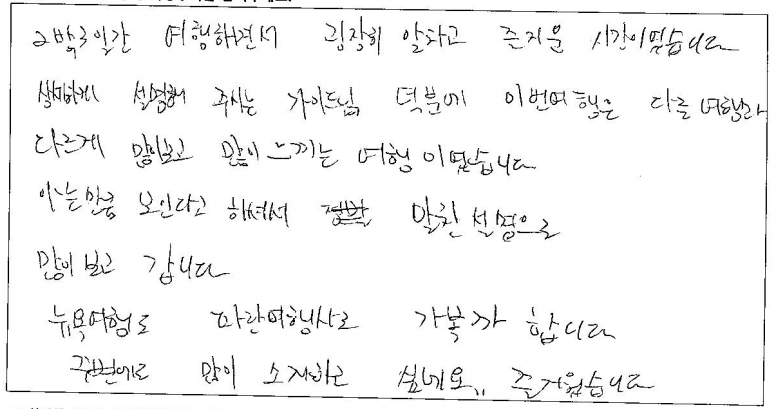 2박3일간 여행하면서 굉장히 알차고 즐거운 시간이었습니다
설명해 주시는 가이드님 덕분에 이번여행은 다른 여행과
다르게 많이보고 많이 느끼는 여행 이었습니다
아는만큼 보인다고 하셔서 알찬 설명으로
많이 보고 갑니다
뉴욕여행도 파란여행사로 가볼까 합니다
주변에도 많이 소개하고 싶네요,, 즐거웠습니다